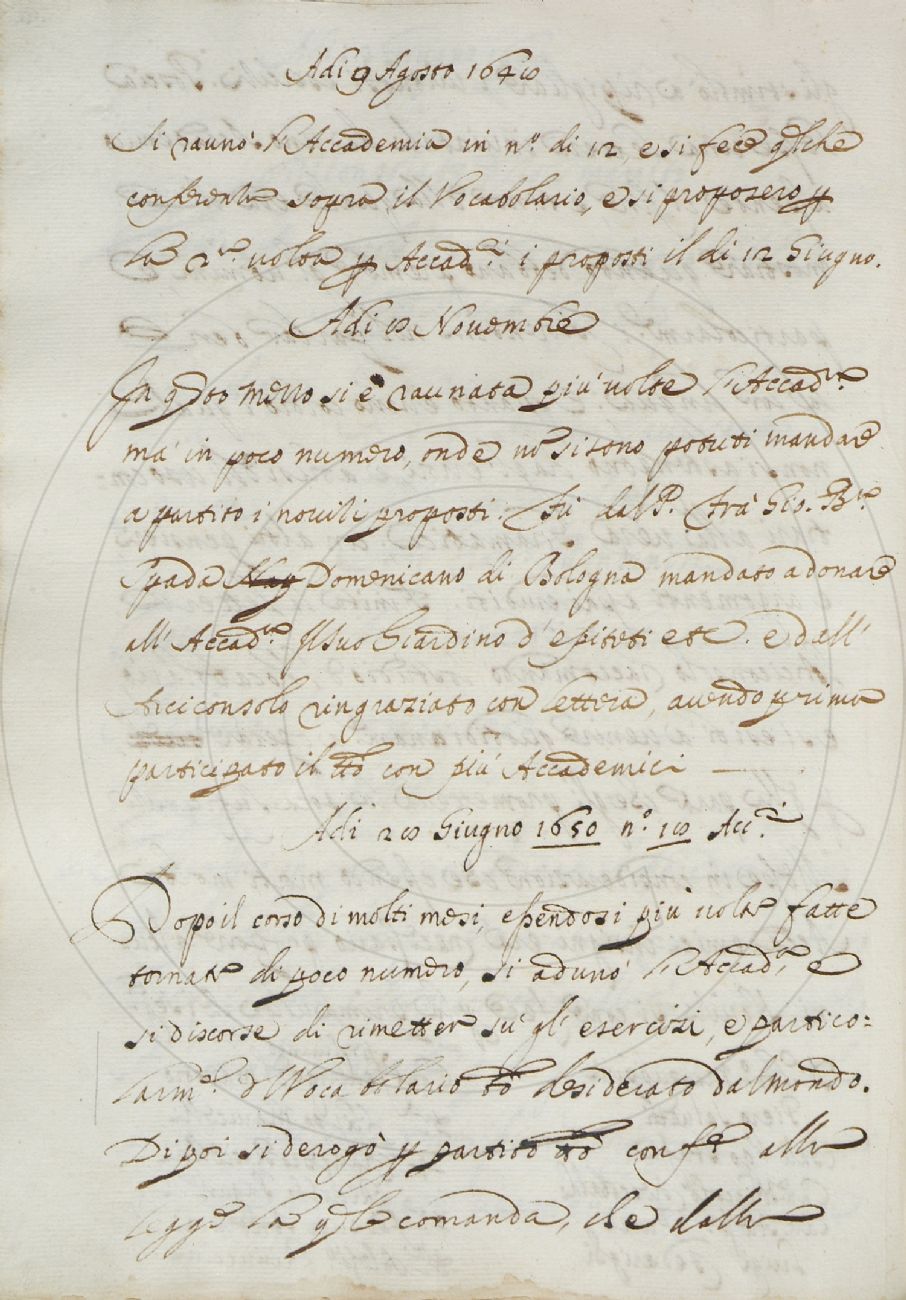 Adi 9 Agosto 1648
Si raunò l'Accademia in n.º di 12, e si fece qlche
conferenza sopra il Vocabolario, e si proposero p
la 2.ª volta p Accad.ci i proposti il di 12 Giugno.
Adi 8 Novembre
In qsto mezzo si è raunata più volte l'Accad.ª
ma' in poco numero, onde nõ si sono potuti mandare
a partito i novili proposti. Fu dal P. Frà Gio. B.ª
Spada Domenicano di Bologna mandato a donare
all' Accad.ª Il suo Giardino d' epiteti etc. e dall'
Arciconsolo ringraziato con lettera, avendo prima
participato il tt.º con più Accademici —
Adi 28 Giugno 1650 n.º 18 Acc.i
Dopo il corso di molti mesi, essendosi più volte fatte
tornate di poco numero, si adunò l'Accad.ª e
si discorse di rimetter sù gl' esercizi, e partico=
larm.e d Vocabolario tt.º desiderato dal mondo.
Dipoi si derogò p partito tt.º conf.e alla
legge la qle comanda, che dalla